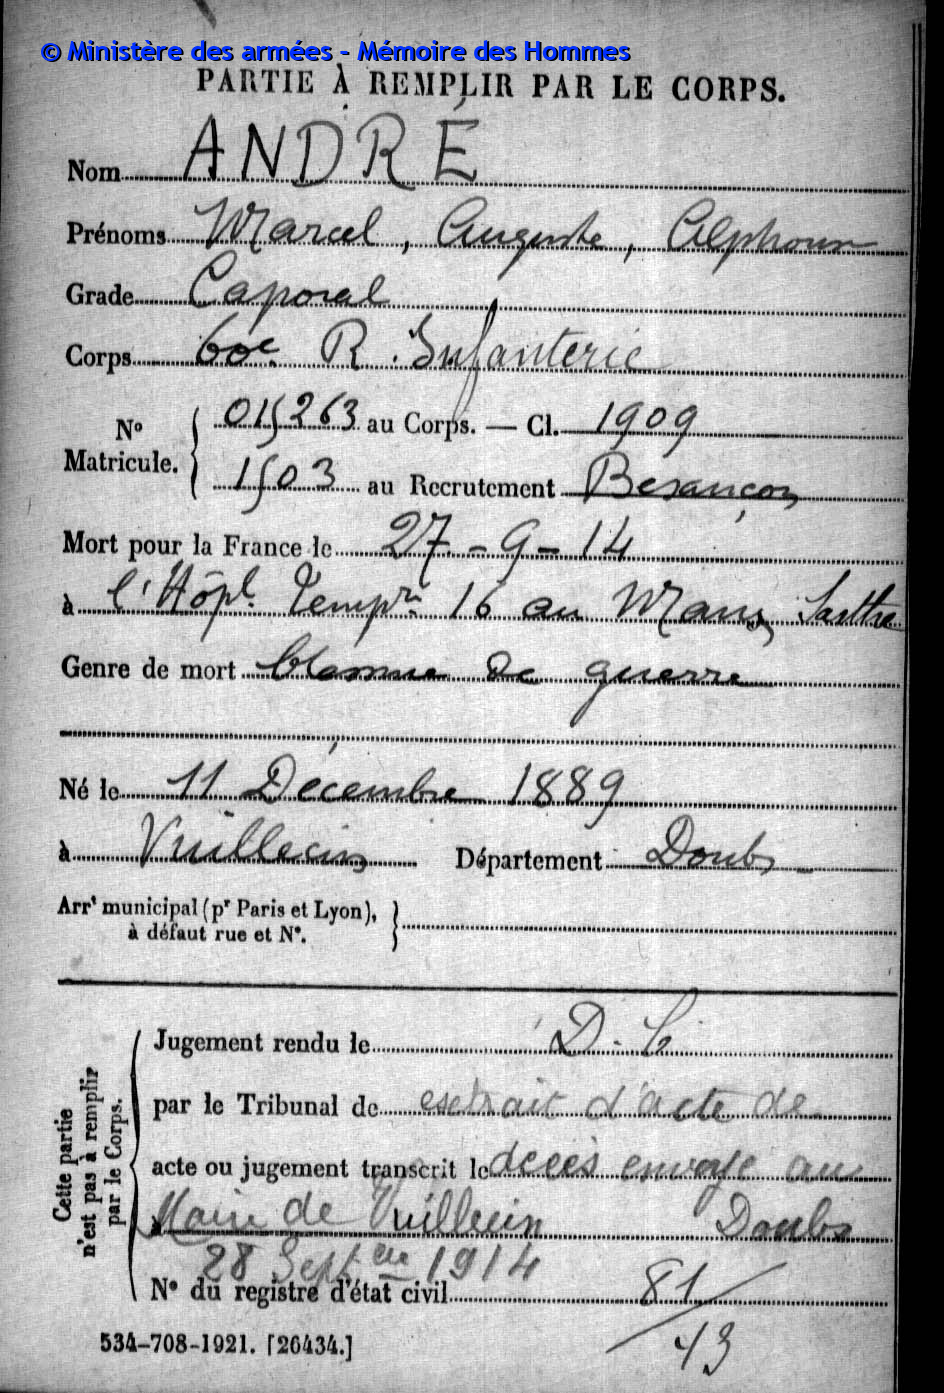 © Ministère des armées - Mémoire des Hommes
PARTIE À REMPLIR PAR LE CORPS.
Nom ANDRÉ
Prénoms Marcel, Auguste, Alphonse
Grade Caporal
Corps 60e R. Infanterie
No Matricule. { 015263 au Corps. — Cl. 1909
1503 au Recrutement Besançon
Mort pour la France le 27-9-14
à l'Hôpl. Tempre 16 au Mans, Sarthe
Genre de mort blessure de guerre
Né le 11 Décembre 1889
à Vuillecin Département Doubs
Arrt municipal (pr Paris et Lyon),
à défaut rue et No.
Cette partie
n'est pas à remplir
par le Corps.
Jugement rendu le D. C.
par le Tribunal de extrait d'acte de
acte ou jugement transcrit le décès envoyé au
à Maire de Vuillecin Doubs
28 Septbre 1914
No du registre d'état civil 81/43
534-708-1921. [26434.]